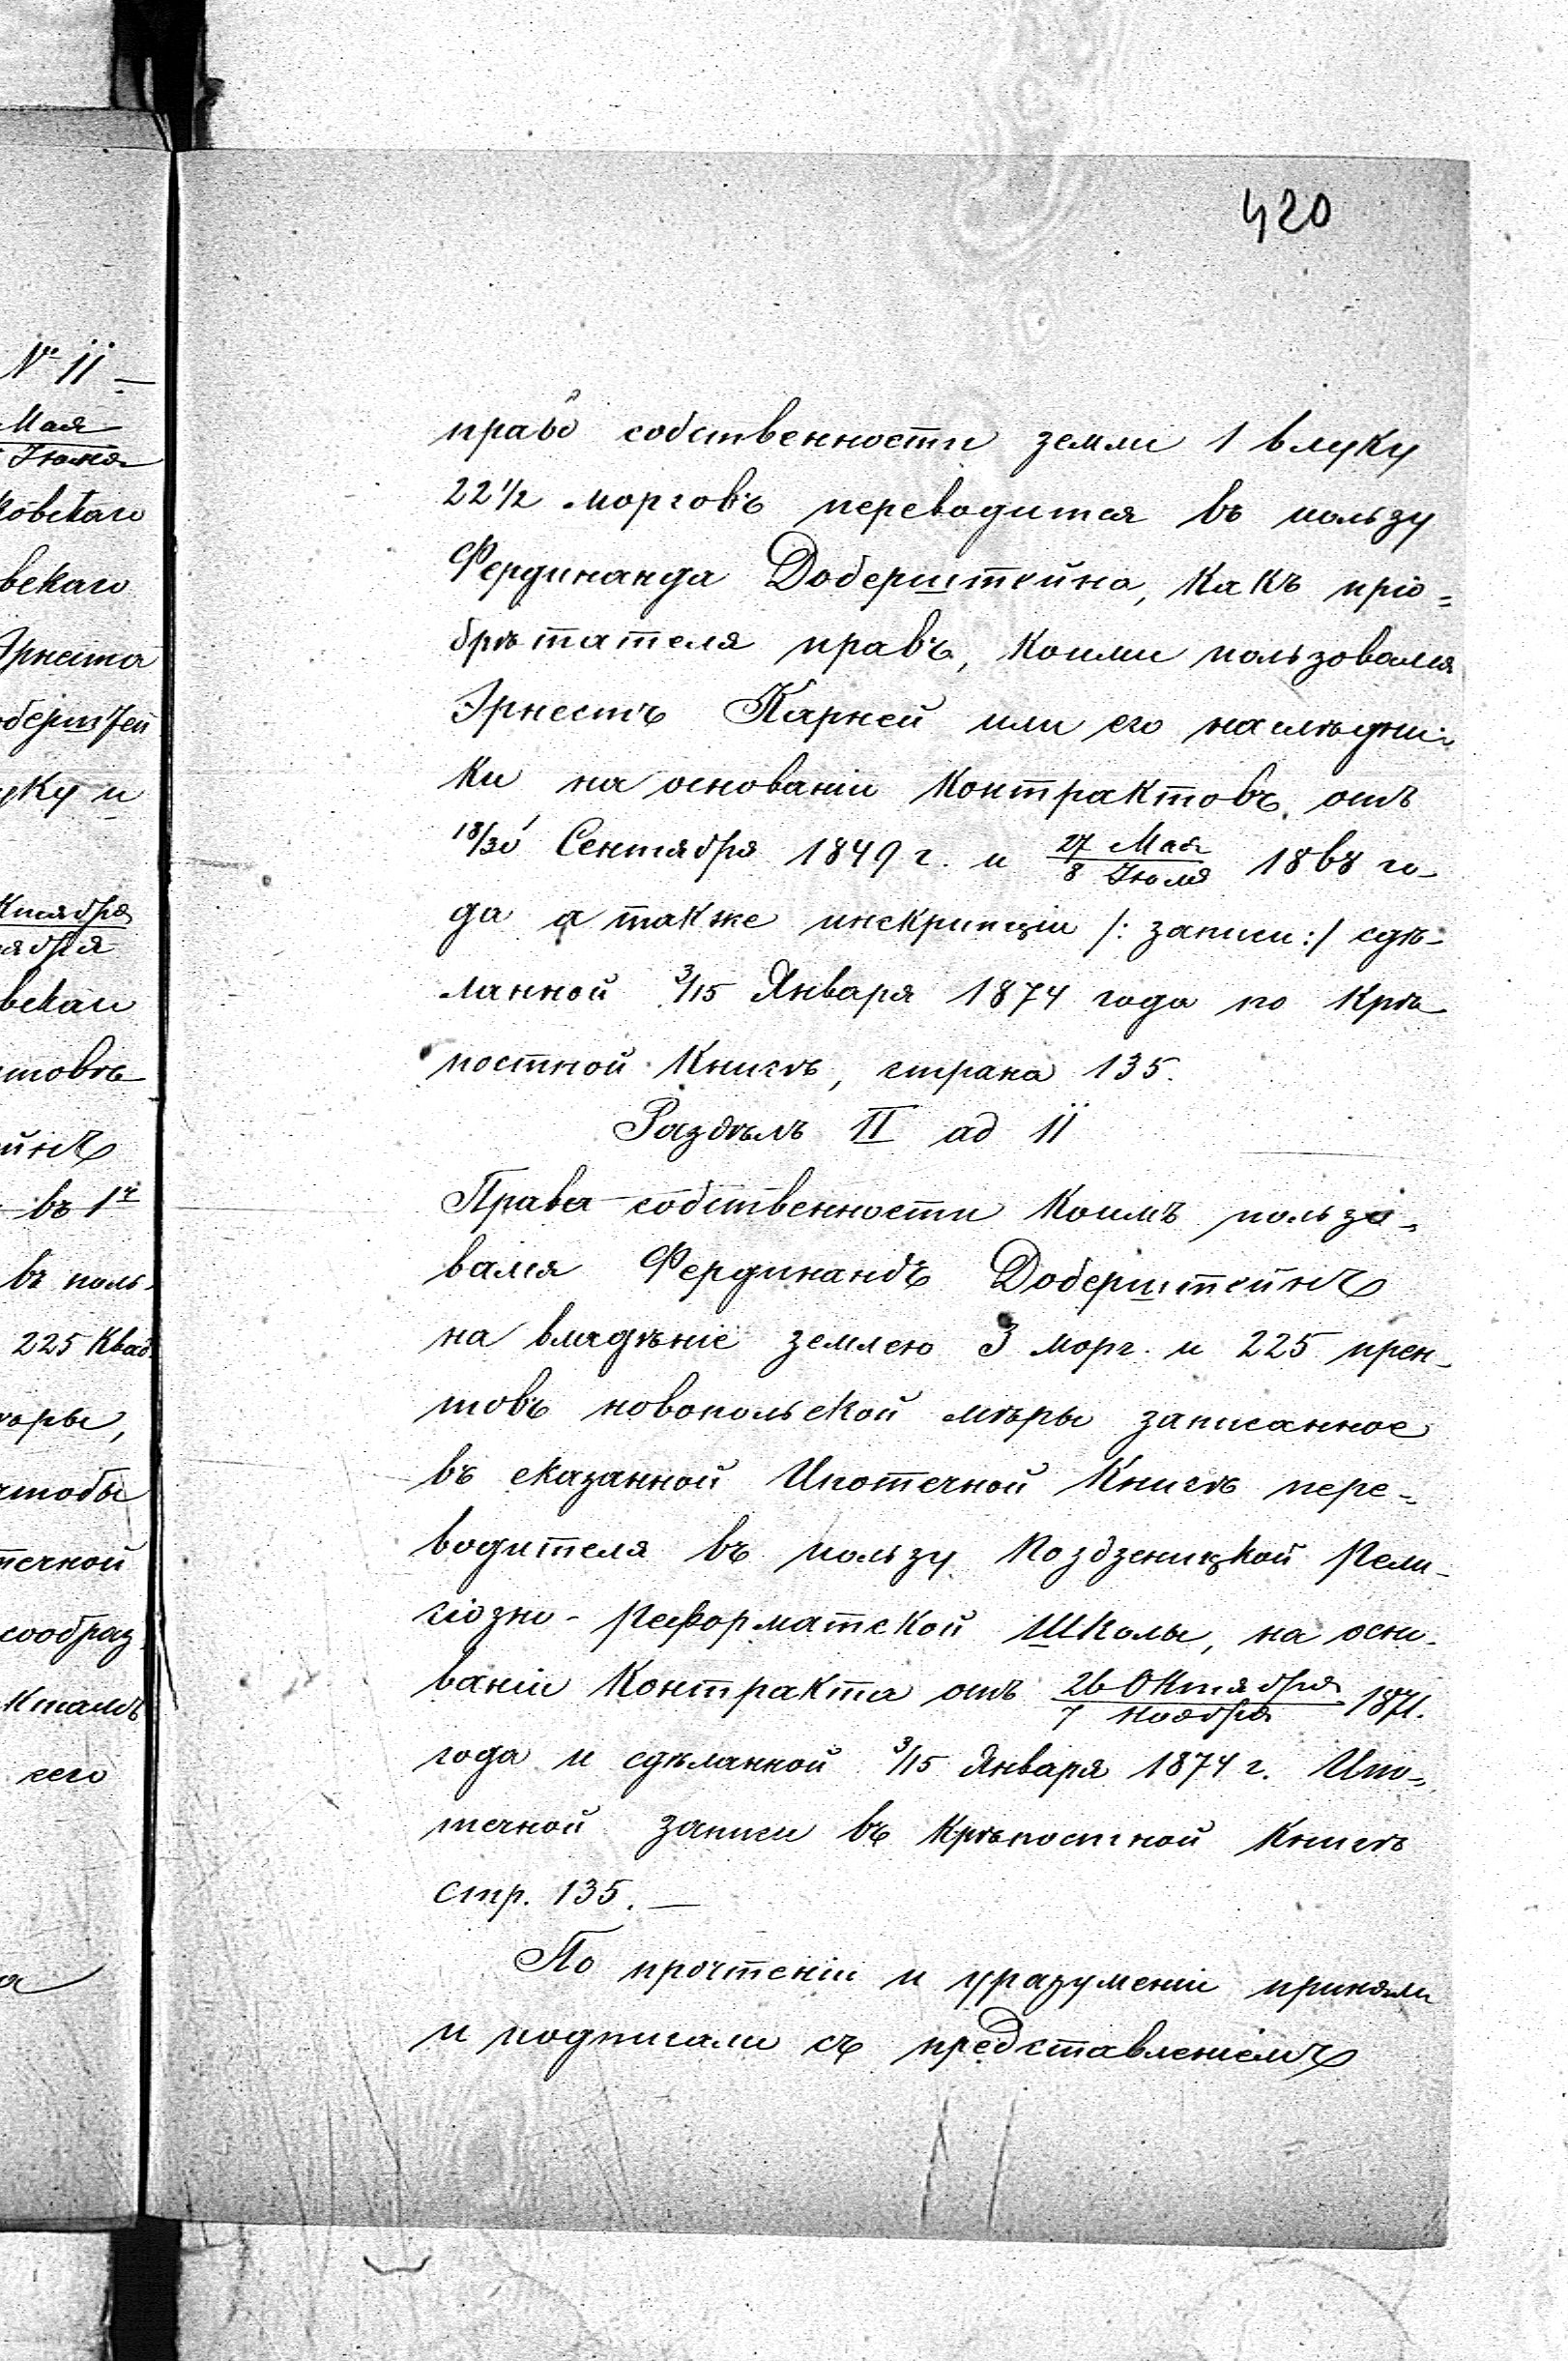 420
№ 11 —
Мая
Іюня
вскаго
Эрнеста
уку и
ктября
ября
вскаго
въ 1й
въ поль-
225 квад.
чтобы
течной
сообраз-
сего
право собственности земли 1 влуку
22 1/2 морговъ переводится въ пользу
Фердинанда Доберштейна, какъ пріо=
брѣтателя правъ, коими пользовался
Эрнестъ Карней или его наслѣдни-
ки на основаніи контрактовъ отъ
18/30 Сентября 1849 г. и 27 Мая / 8 Іюня 1868 го-
да а также инскрипціи /: записи :/ сдѣ-
ланной 3/15 Января 1874 года по крѣ-
постной книгѣ, страна 135.
Раздѣлъ II ad 11
Права собственности коимъ пользо-
вался Фердинандъ Доберштейнъ
на владѣніе землею 3 морг. и 225 прен-
товъ новопольской мѣры записанное
въ сказанной Ипотечной книгѣ пере-
водителя въ пользу Поздзеницкой Рели-
гіозно-Реформатской Школы, на осно-
ваніи контракта отъ 26 Октября / 7 Ноября 1871.
года и сдѣланной 3/15 Января 1874 г. Ипо-
течной записи въ крѣпостной книгѣ
стр. 135. —
По прочтеніи и уразуменіи приняли
и подписали съ представленіемъ